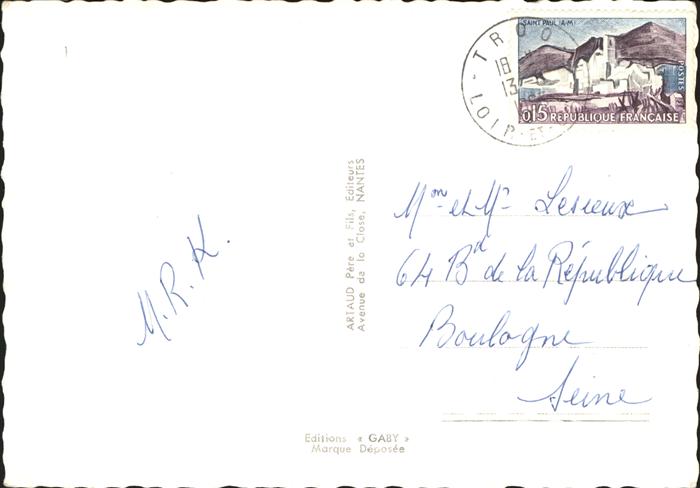 SAINT PAUL (A-M)
POSTES
0,15 RÉPUBLIQUE FRANÇAISE
TROO
18
13
LOIR-ET-
M.R.K.
ARTAUD Père et Fils, Editeurs
Avenue de la Close, NANTES
Mon et Mr Lesieux
64 Bd de la République
Boulogne
Seine
Editions « GABY »
Marque Déposée